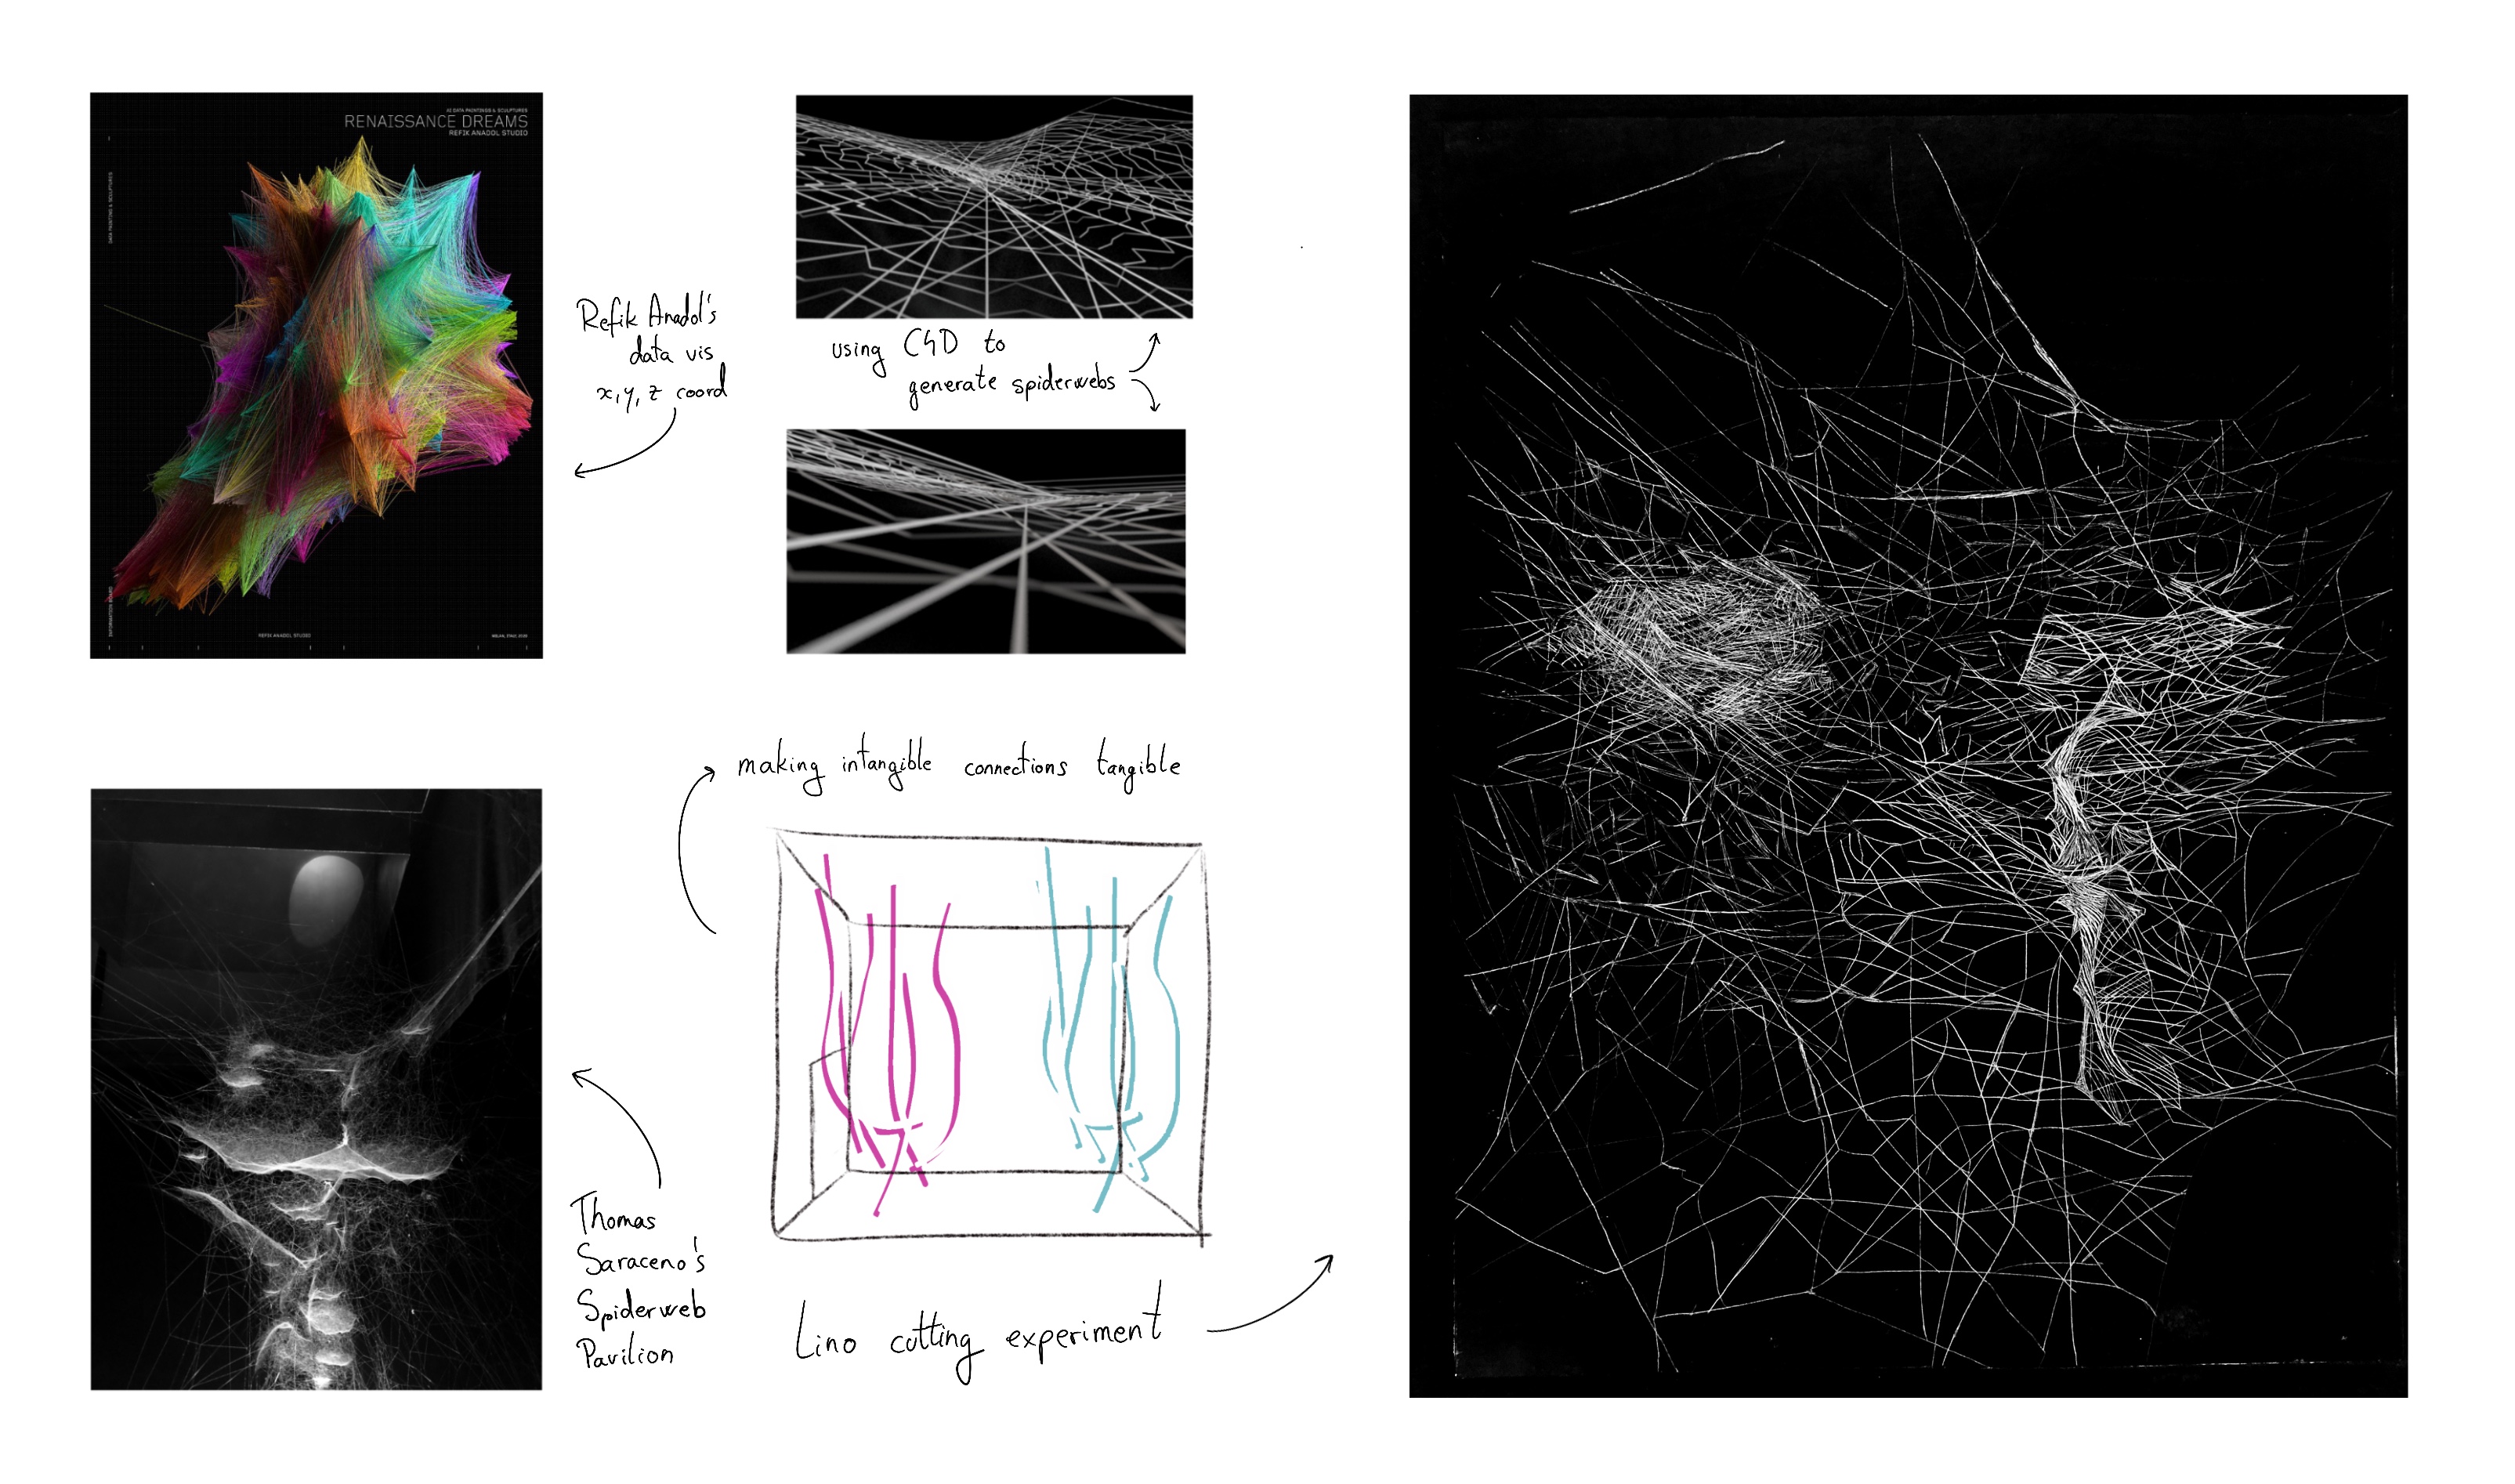 AI DATA PAINTINGS & SCULPTURES
RENAISSANCE DREAMS
REFIK ANADOL STUDIO
DATA PAINTING & SCULPTURES
INFORMATION BOARD
REFIK ANADOL STUDIO
MILAN, ITALY, 2020
Refik Anadol's
data vis
x, y, z coord
using C4D to
generate spiderwebs
making intangible connections tangible
Thomas
Saraceno's
Spiderweb
Pavilion
Lino cutting experiment